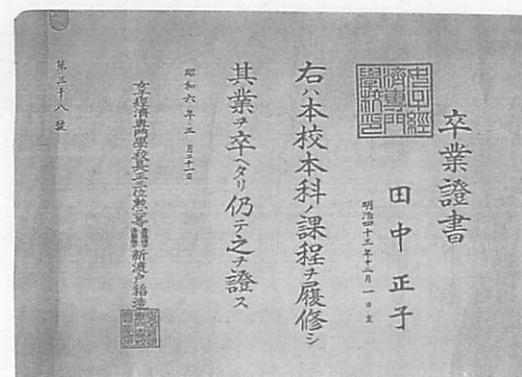 卒業證書
田中正子
明治四十三年十二月一日生
右ハ本校本科ノ課程ヲ履修シ
其業ヲ卒ヘタリ仍テ之ヲ證ス
昭和六年三月二十一日
女子經濟專門學校長正三位勳一等新渡戶稻造
第三十八號
女子經濟專門學校印